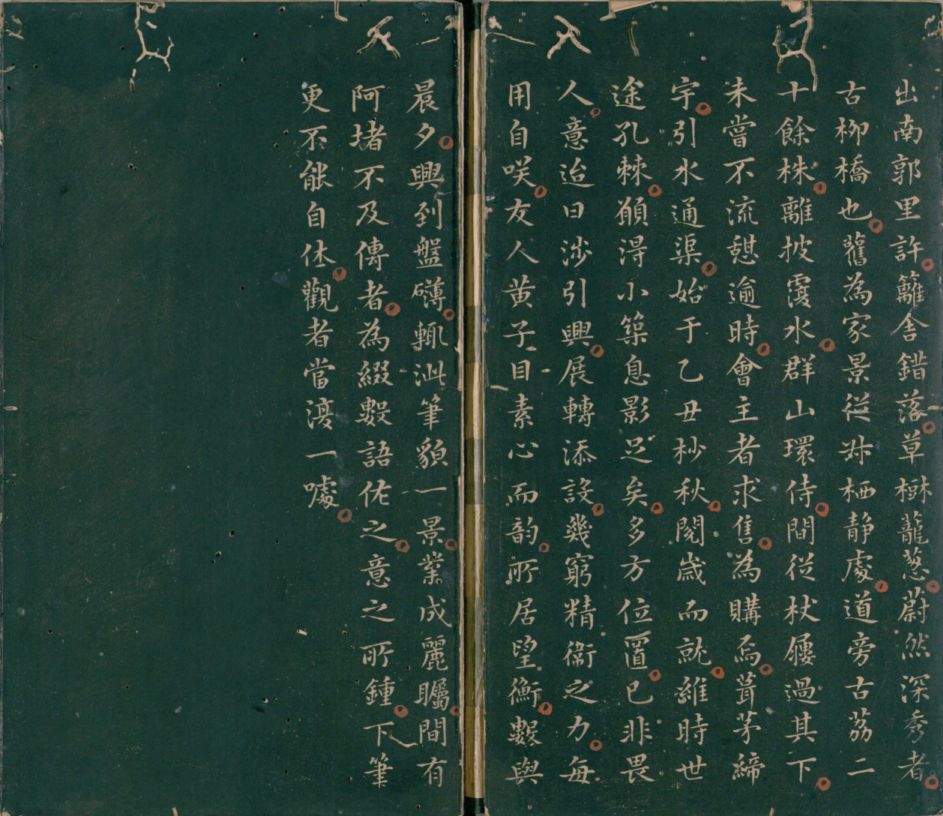 出南郭里許籬舍錯落草樹蘢葱蔚然深秀者
古柳橋也舊為家景從叔栖静處道旁古荔二
十餘株離披覆水群山環侍間從杖屨過其下
未嘗不流憇逾時會主者求售為購焉葺茅締
宇引水通渠始于乙丑杪秋閱歲而就維時世
途孔棘願得小築息影足矣多方位置已非畏
人意迨日涉引興展轉添設幾窮精衛之力每
用自咲友人黄子目素心而韵所居望衡數與
晨夕興到盤礴輒泚筆貌一景業成麗矚間有
阿堵不及傳者為綴數語佐之意之所鍾下筆
更不能自休觀者當淂一噱